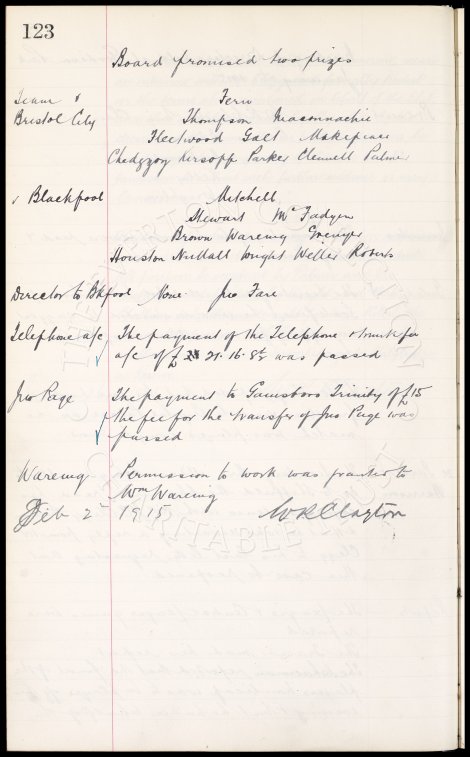 123
Board promised two prizes
Team v Fern
Bristol City Thompson Maconnachie
Fleetwood Galt Makepeace
Chedgzoy Kirsopp Parker Clennell Palmer
v Blackpool Mitchell
Stewart McFadyen
Brown Wareing Grenyer
Houston Nuttall Wright Weller Roberts
Director to Bkpool None Jno Fare
Telephone a/c The payment of the Telephone & trunk fee
a/c of £ 21-16-8½ was passed
Jno Page The payment to Gainsboro Trinity of £15
the fee for the transfer of Jno Page was
passed
Wareing Permission to work was granted to
Wm Wareing
Feb 2nd 1915 W R Clayton